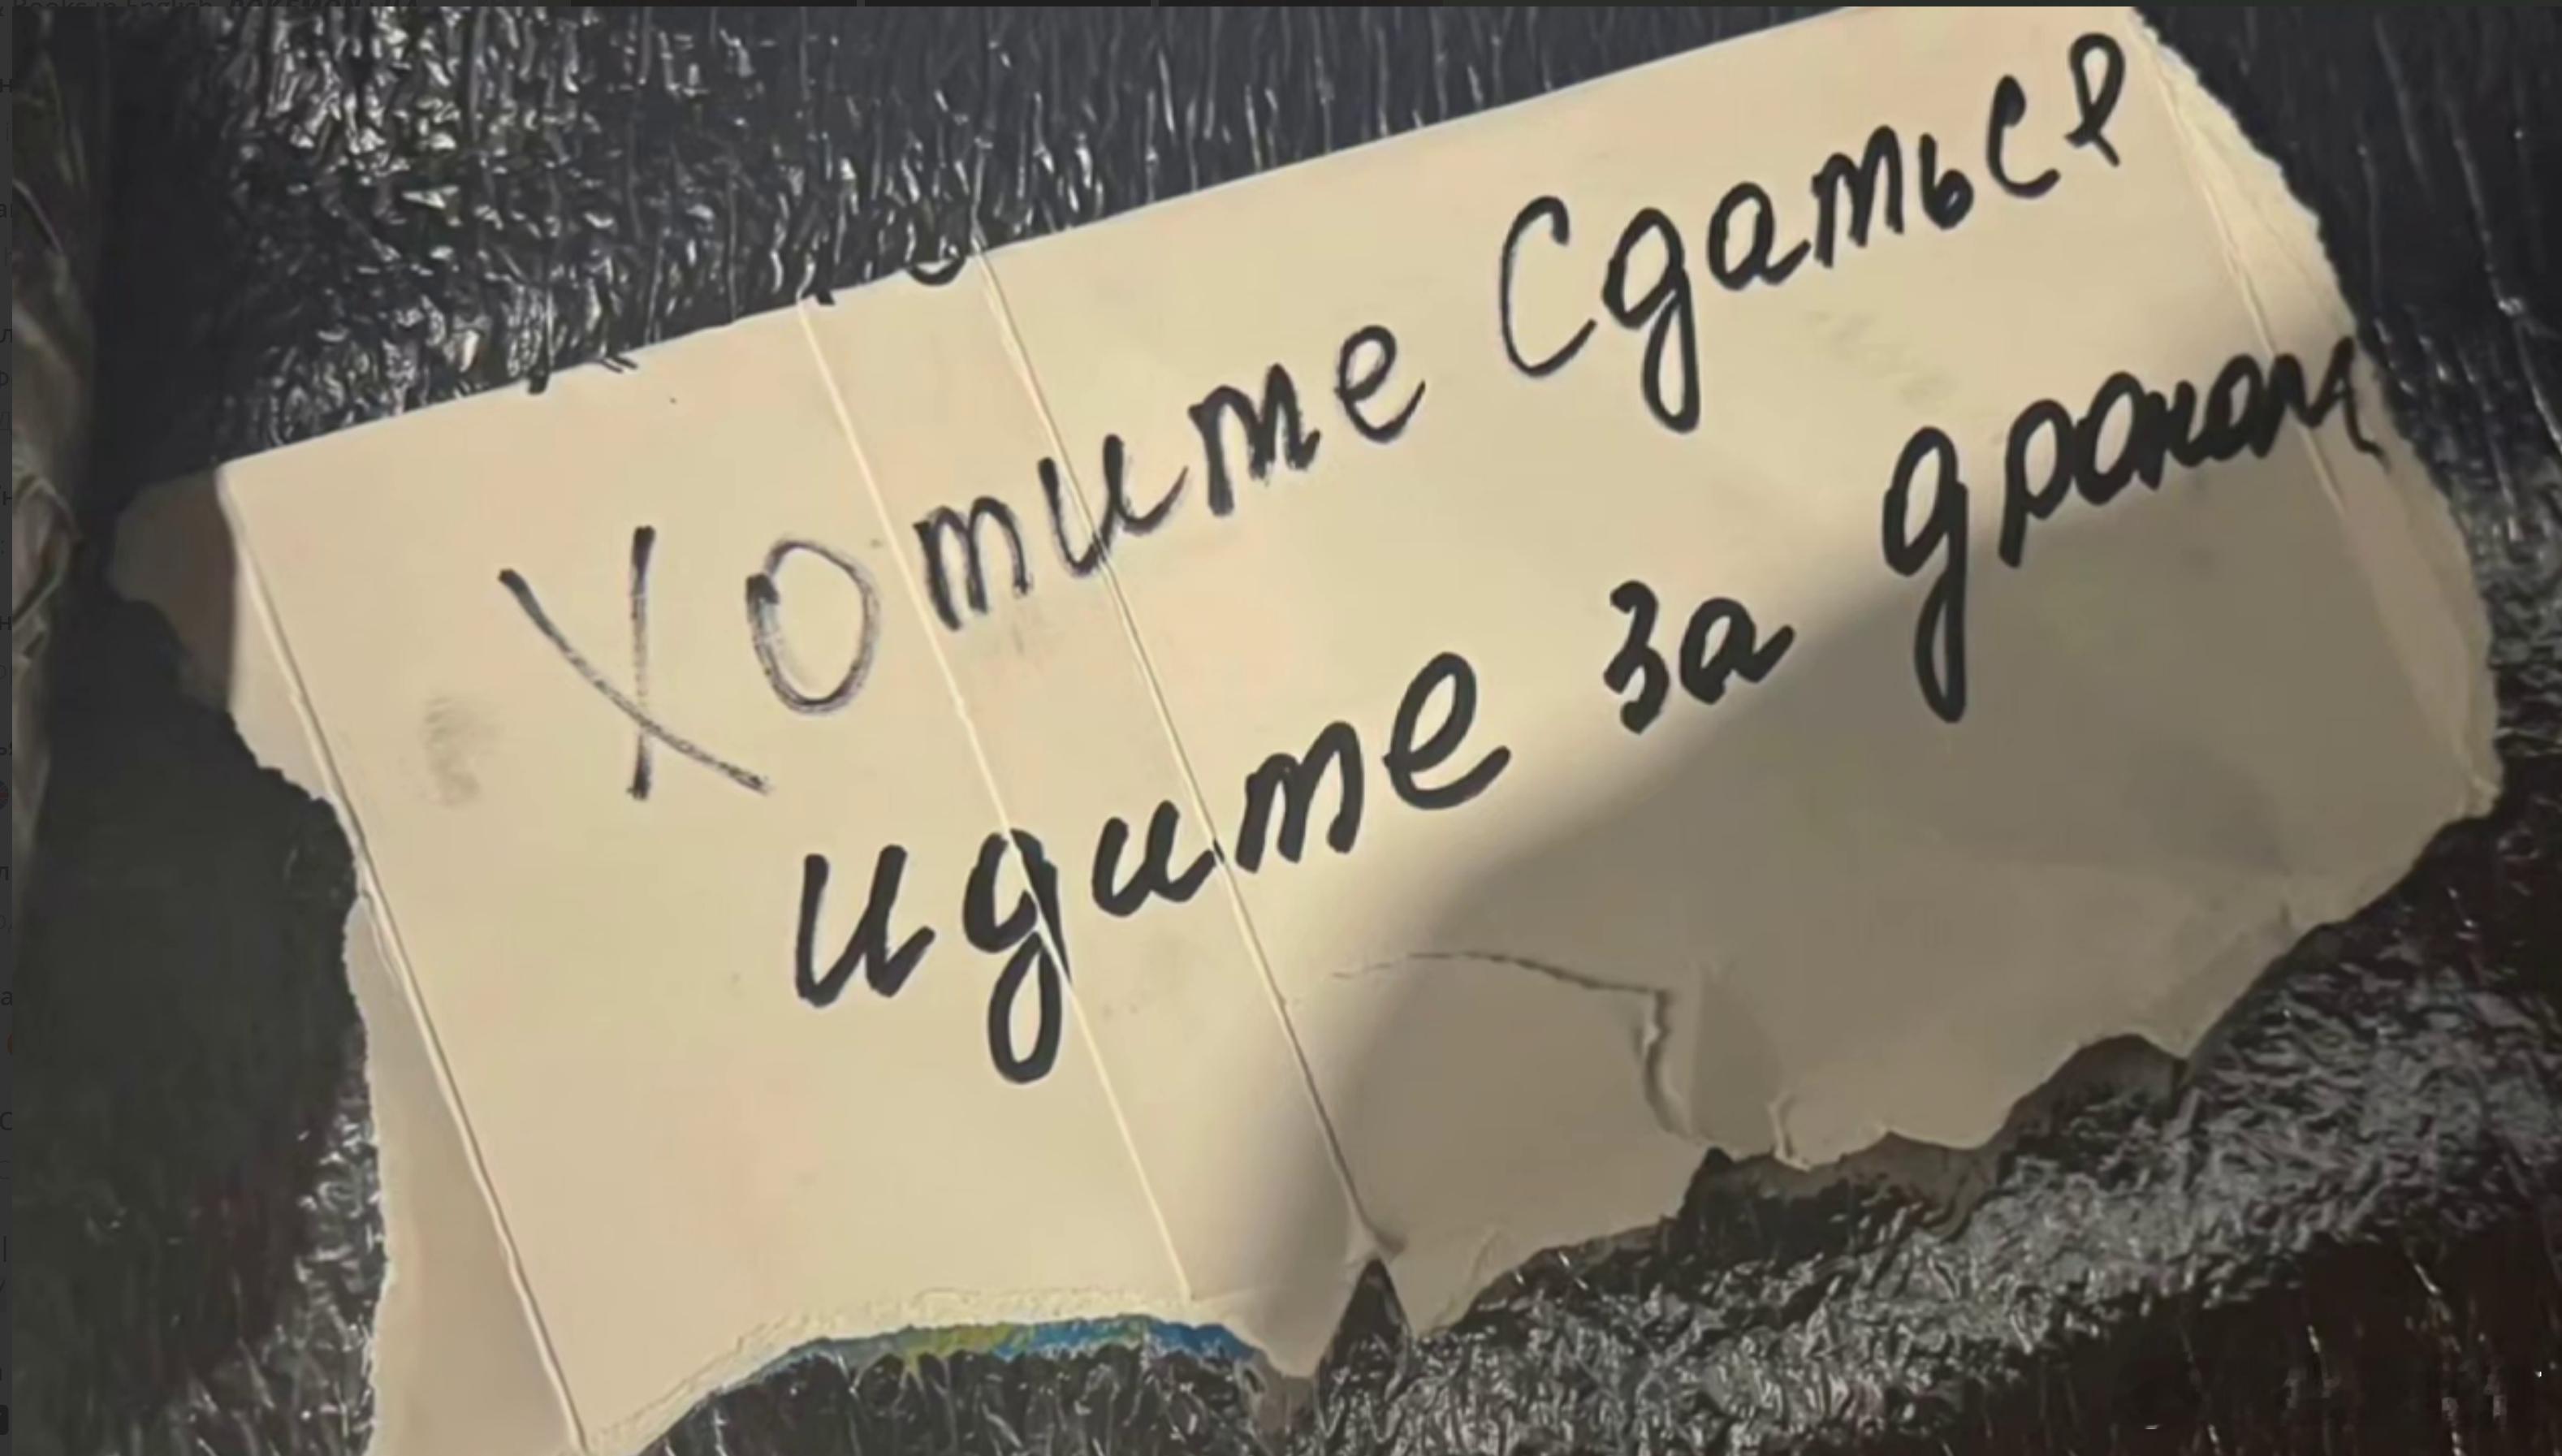 Хотите Сдаться
идите за дроном